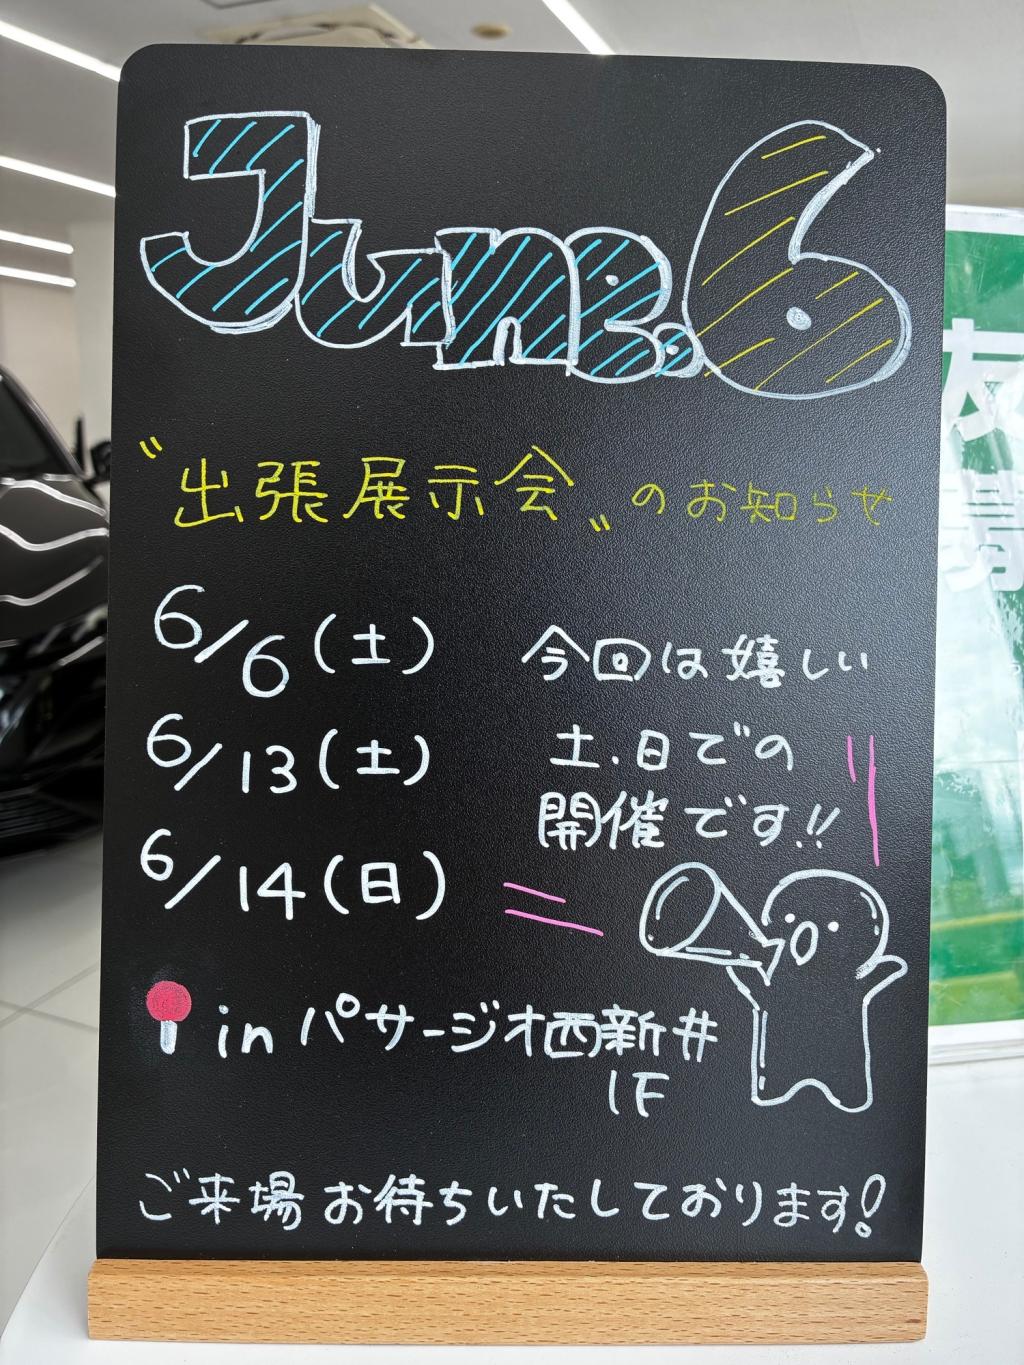 June.6
〝出張展示会〟のお知らせ
6/6(土)
6/13(土)
6/14(日)
今回は嬉しい
土.日での
開催です!!
in パサージオ西新井
1F
ご来場お待ちいたしております!